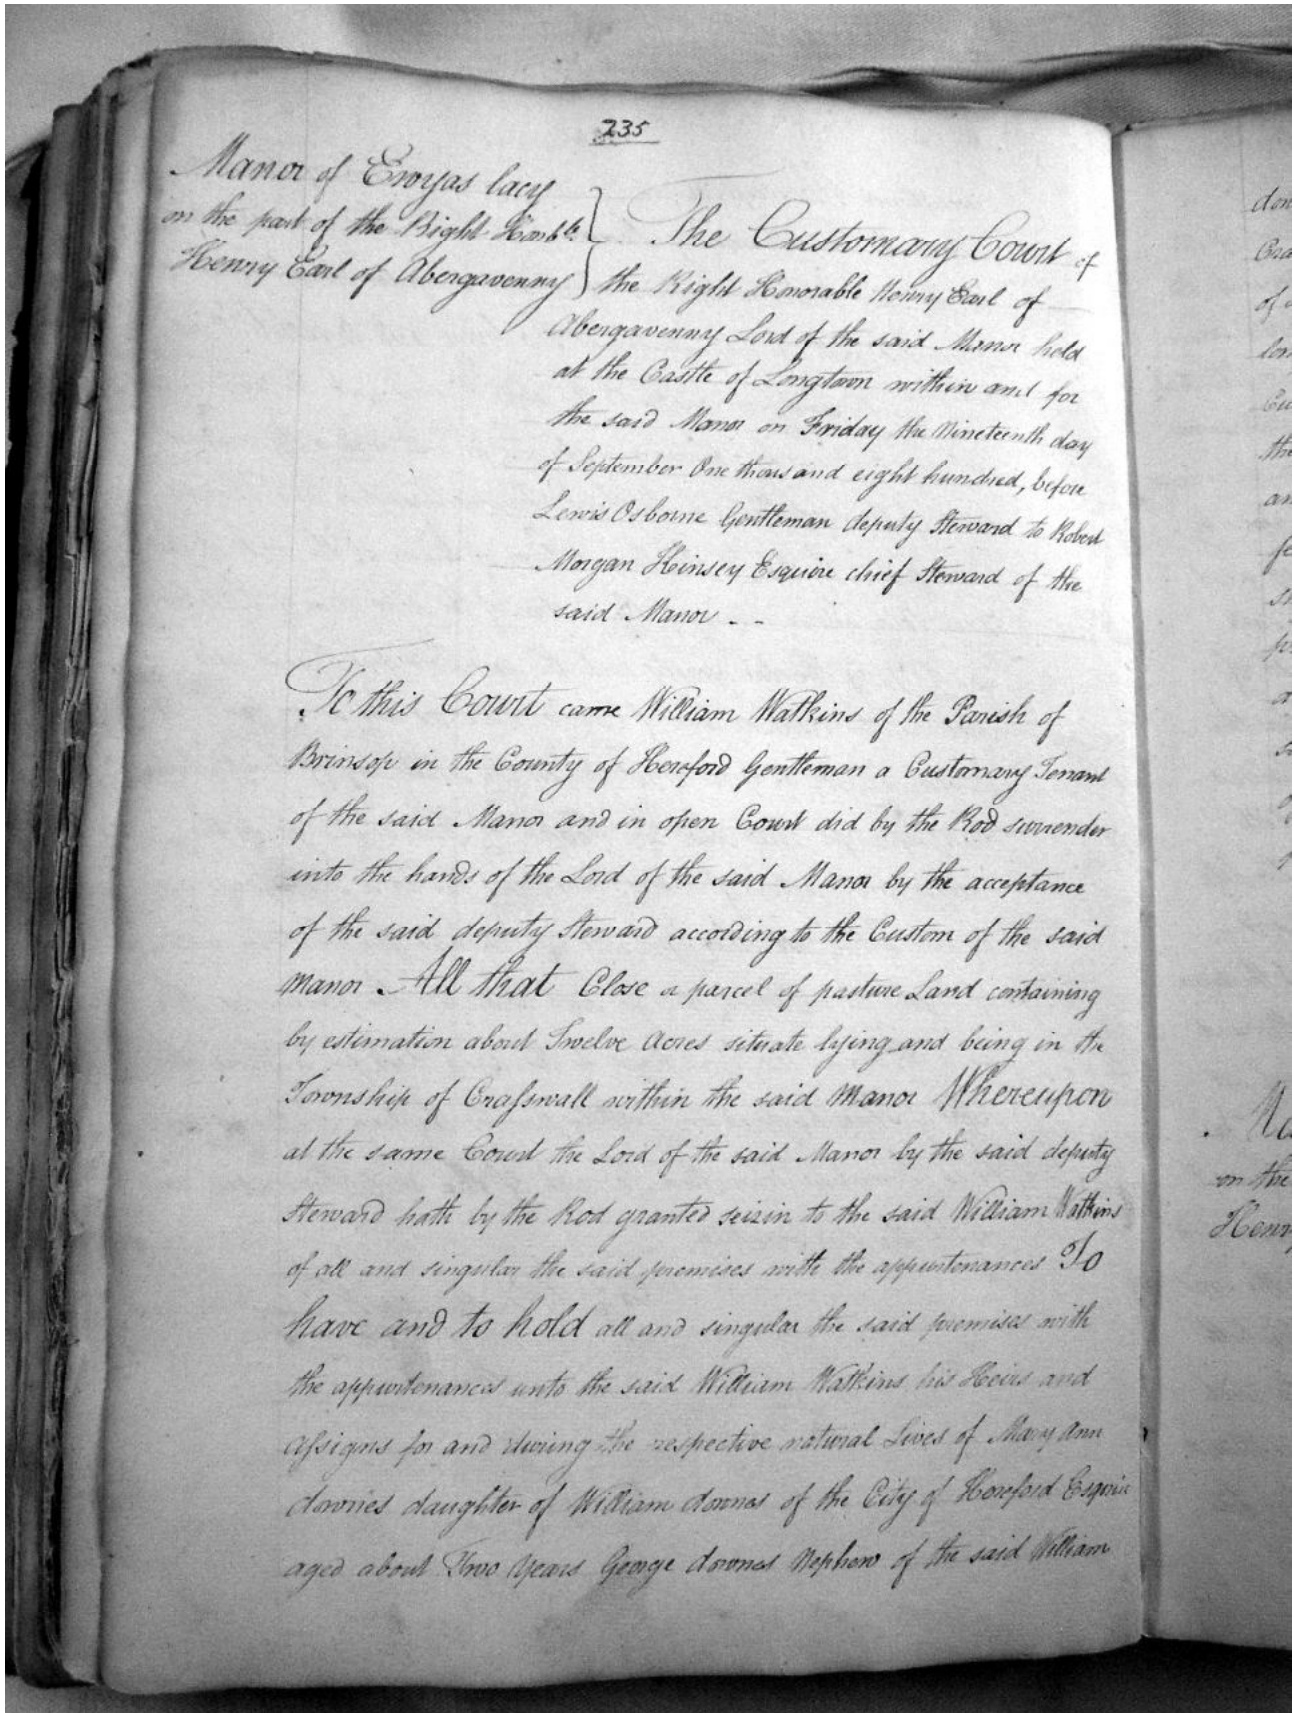 235
Manor of Ewyas lacy
on the part of the Right Honble
Henry Earl of Abergavenny
The Customary Court of
the Right Honorable Henry Earl of
Abergavenny Lord of the said Manor held
at the Castle of Longtown within and for
the said Manor on Friday the Nineteenth day
of September One thousand eight hundred, before
Lewis Osborne Gentleman deputy Steward to Robert
Morgan Kinsey Esquire chief Steward of the
said Manor - -
To this Court came William Watkins of the Parish of
Brinsop in the County of Hereford Gentleman a Customary Tenant
of the said Manor and in open Court did by the Rod surrender
into the hands of the Lord of the said Manor by the acceptance
of the said deputy Steward according to the Custom of the said
Manor . All that Close or parcel of pasture Land containing
by estimation about Twelve Acres situate lying and being in the
Township of Crasswall within the said Manor Whereupon
at the same Court the Lord of the said Manor by the said deputy
Steward hath by the Rod granted seizin to the said William Watkins
of all and singular the said premises with the appurtenances To
have and to hold all and singular the said premises with
the appurtenances unto the said William Watkins his Heirs and
Assigns for and during the respective natural Lives of Mary Ann
downes daughter of William downes of the City of Hereford Esquire
aged about Two Years George downes Nephew of the said William
on the
Henry